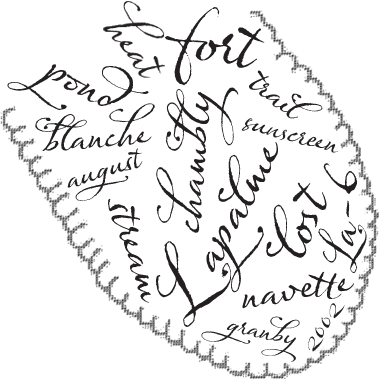 heat
fort
pond
trail
blanche
chambly
sunscreen
august
Lapalme
stream
lost
La-6
navette
granby
2002